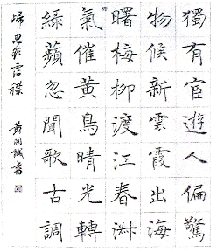 獨有宦遊人偏驚
物候新雲霞出海
曙梅柳渡江春淑
氣催黃鳥晴光轉
綠蘋忽聞歌古調
歸思欲霑襟 黃書